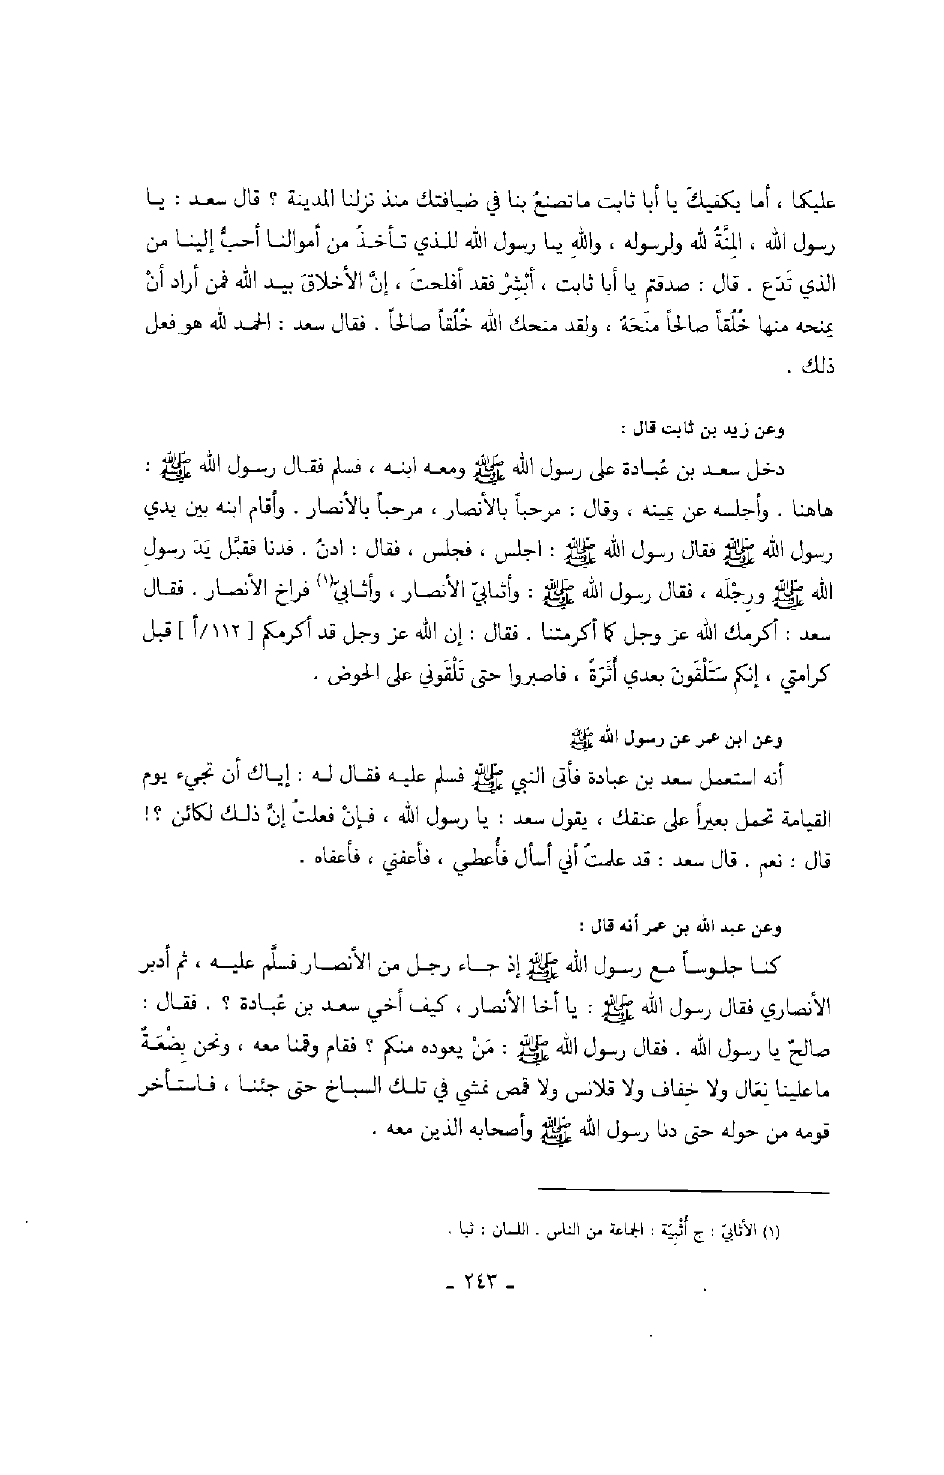 عليكما ، أما يكفيكَ يا أبا ثابت ماتصنعُ بنا في ضيافتك منذ نزلنا المدينة ؟ قال سعد : يا
رسول الله ، المِنَّةُ لله ولرسوله ، واللهِ يا رسول الله للذي تأخذُ من أموالنا أحبُّ إلينا من
الذي تَدَع . قال : صدقتم يا أبا ثابت ، أبْشِرْ فقد أفلحتَ ، إنَّ الأخلاقَ بيد الله فمن أراد أنْ
يمنحه منها خُلُقاً صالحاً منَحَهُ ، ولقد منحك الله خُلُقاً صالحاً . فقال سعد : الحمد لله هو فعل
ذلك .
وعن زيد بن ثابت قال :
دخل سعد بن عُبادة على رسول الله ﷺ ومعه ابنه ، فسلم فقال رسول الله ﷺ :
هاهنا . وأجلسه عن يمينه ، وقال : مرحباً بالأنصار ، مرحباً بالأنصار . وأقام ابنه بين يدي
رسول الله ﷺ فقال رسول الله ﷺ : اجلس ، فجلس ، فقال : ادنُ . فدنا فقبَّل يَدَ رسولِ
الله ﷺ ورِجْلَه ، فقال رسول الله ﷺ : وأثابيّ الأنصار ، وأثابيّ(١) فراخ الأنصار . فقال
سعد : أكرمك الله عز وجل كما أكرمتنا . فقال : إن الله عز وجل قد أكرمكم [ ١١٢/أ ] قبل
كرامتي ، إنكم سَتَلْقَونَ بعدي أَثَرَةً ، فاصبروا حتى تَلْقَوني على الحوض .
وعن ابن عمر عن رسول الله ﷺ
أنه استعمل سعد بن عبادة فأتى النبي ﷺ فسلم عليه فقال له : إياك أن تجيء يوم
القيامة تحمل بعيراً على عنقك ، يقول سعد : يا رسول الله ، فإنْ فعلتُ إنَّ ذلك لكائن ؟!
قال : نعم . قال سعد : قد علمتُ أني أسأل فأُعطي ، فأعفني ، فأعفاه .
وعن عبد الله بن عمر أنه قال :
كنا جلوساً مع رسول الله ﷺ إذ جاء رجل من الأنصار فسلَّم عليه ، ثم أدبر
الأنصاري فقال رسول الله ﷺ : يا أخا الأنصار ، كيف أخي سعد بن عُبادة ؟ . فقال :
صالحٌ يا رسول الله . فقال رسول الله ﷺ : مَنْ يعوده منكم ؟ فقام وقمنا معه ، ونحن بِضْعَةَ
ماعلينا نِعَال ولا خِفاف ولا قلانس ولا قمص نمشي في تلك السباخ حتى جئنا ، فاستأخر
قومه من حوله حتى دنا رسول الله ﷺ وأصحابه الذين معه .
(١) الأثابيّ : ج أُثْبِيّة : الجماعة من الناس . اللسان : ثبا .
ـ ٢٤٣ ـ